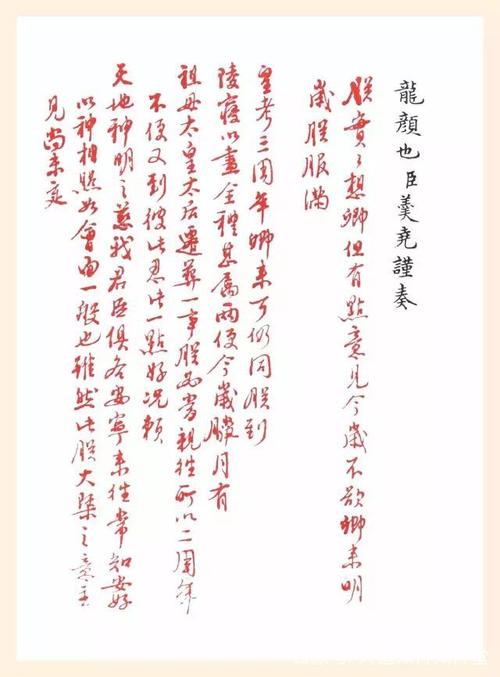 龍顏也臣羹堯謹奏
朕實々想卿但有點意見今歲不欲卿來明
歲朕服滿
皇考三周年卿來可仍同朕到
陵寢以盡全禮甚屬兩便今歲臘月有
祖母太皇太后遷葬一事朕必當親往所以二周年
不便又到彼此忍此一點好況賴
天地神明之慈我君臣俱各安寧來往常知安好
以神相照如會面一般也雖然此朕大槩之意主
見尚未定